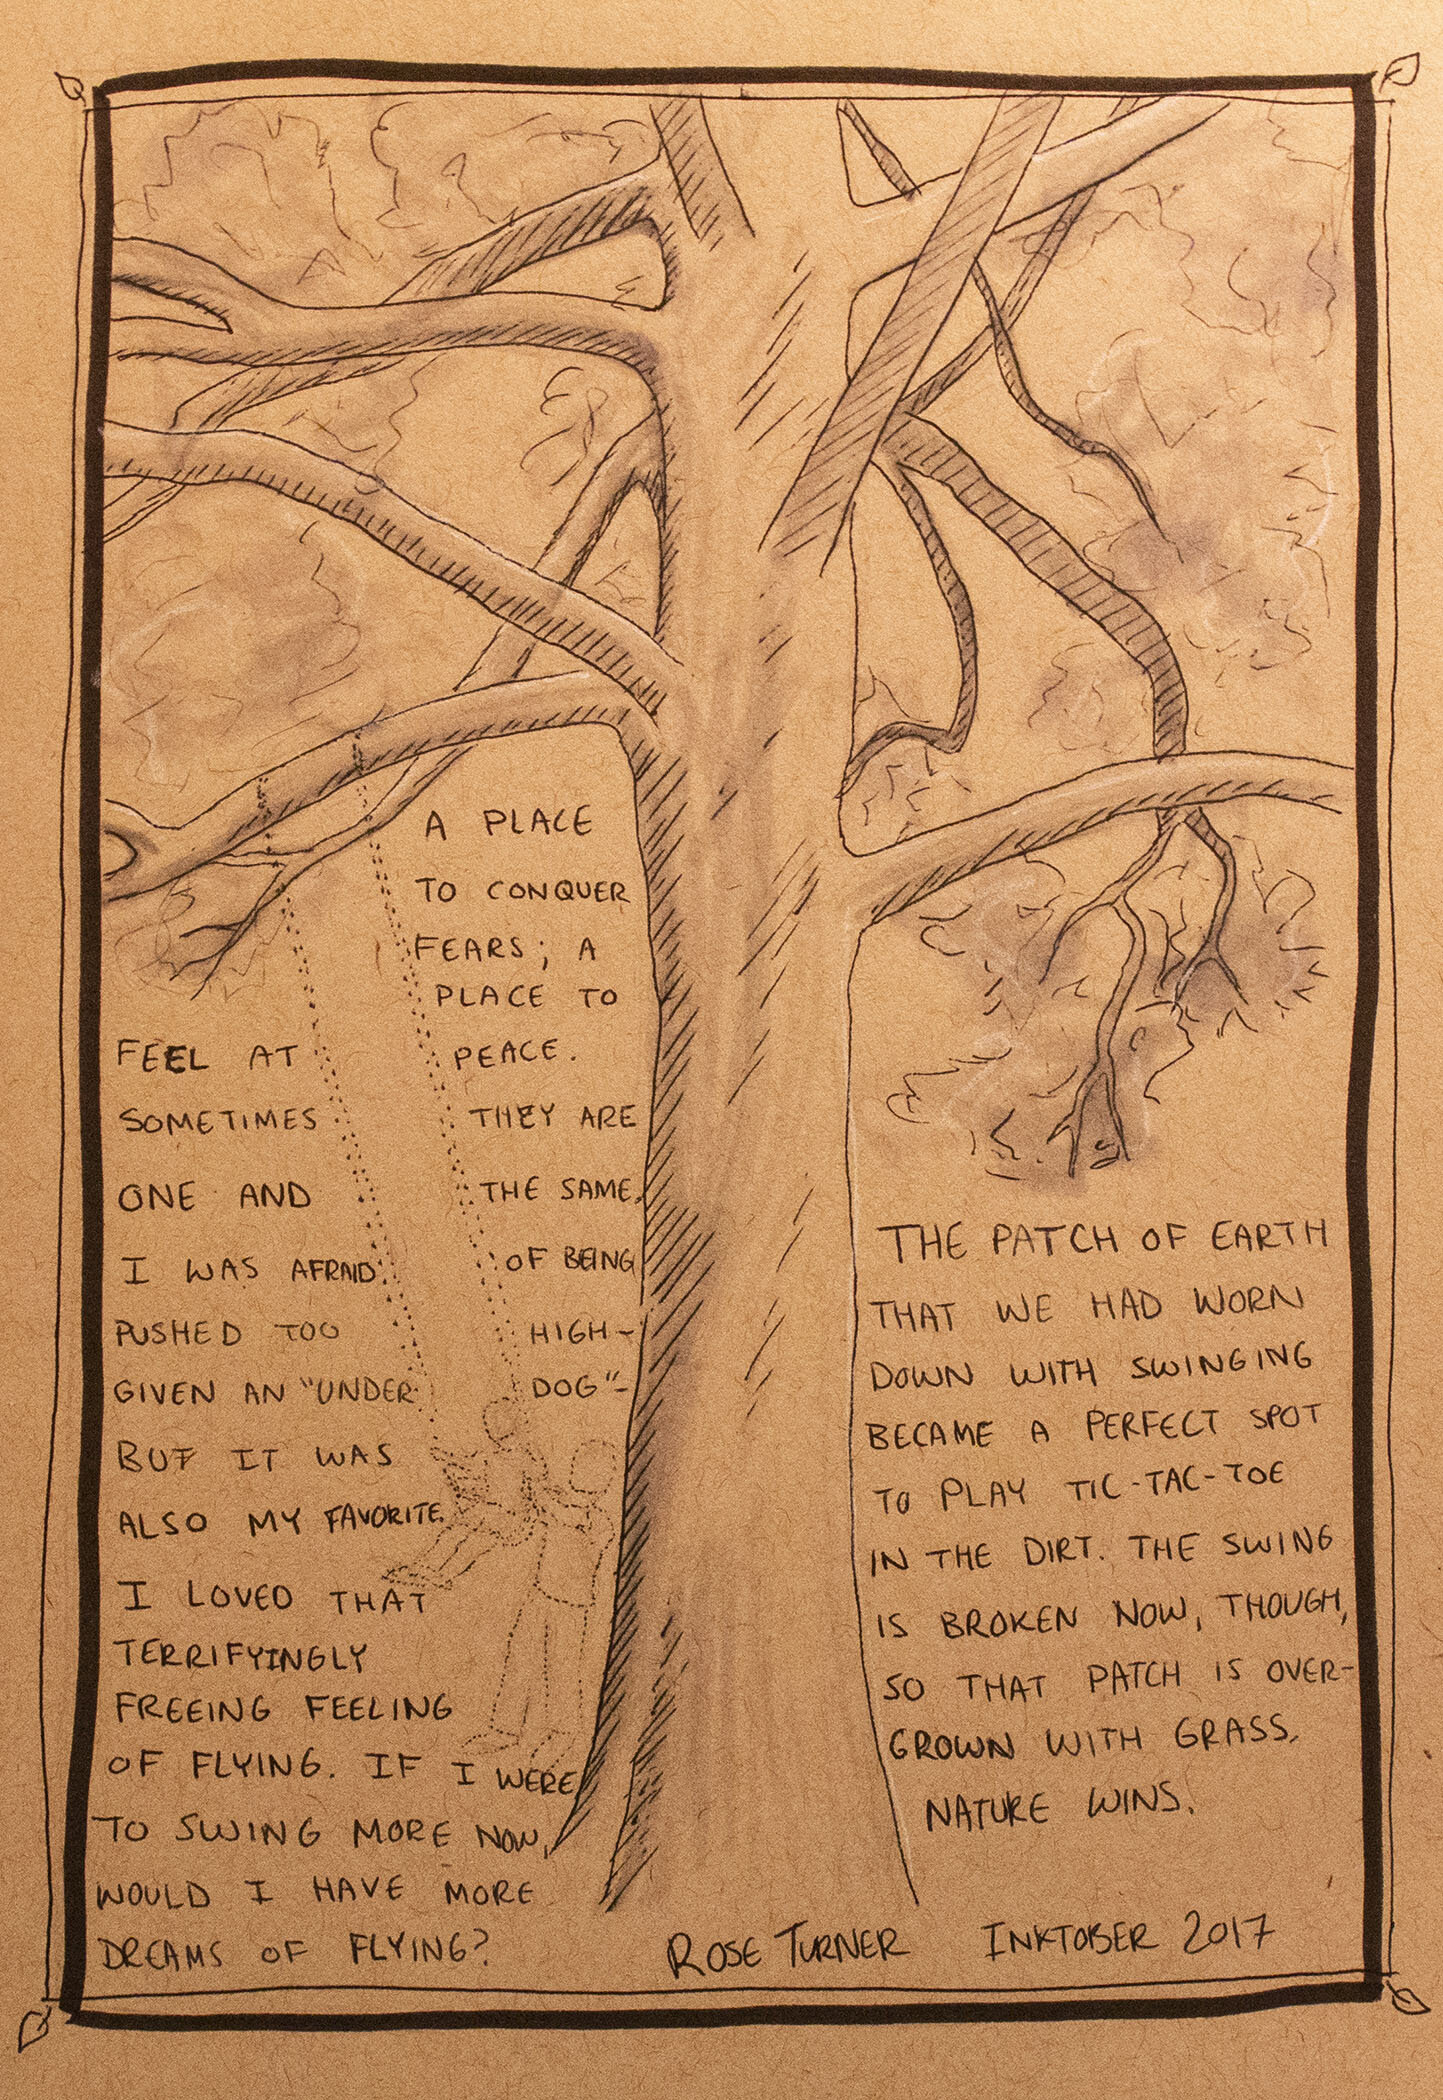 A PLACE
TO CONQUER
FEARS; A
PLACE TO
FEEL AT PEACE.
SOMETIMES THEY ARE
ONE AND THE SAME.
I WAS AFRAID OF BEING
PUSHED TOO HIGH-
GIVEN AN "UNDER DOG"-
BUT IT WAS
ALSO MY FAVORITE.
I LOVED THAT
TERRIFYINGLY
FREEING FEELING
OF FLYING. IF I WERE
TO SWING MORE NOW,
WOULD I HAVE MORE
DREAMS OF FLYING?
THE PATCH OF EARTH
THAT WE HAD WORN
DOWN WITH SWINGING
BECAME A PERFECT SPOT
TO PLAY TIC-TAC-TOE
IN THE DIRT. THE SWING
IS BROKEN NOW, THOUGH,
SO THAT PATCH IS OVER-
GROWN WITH GRASS.
NATURE WINS.
ROSE TURNER INKTOBER 2017